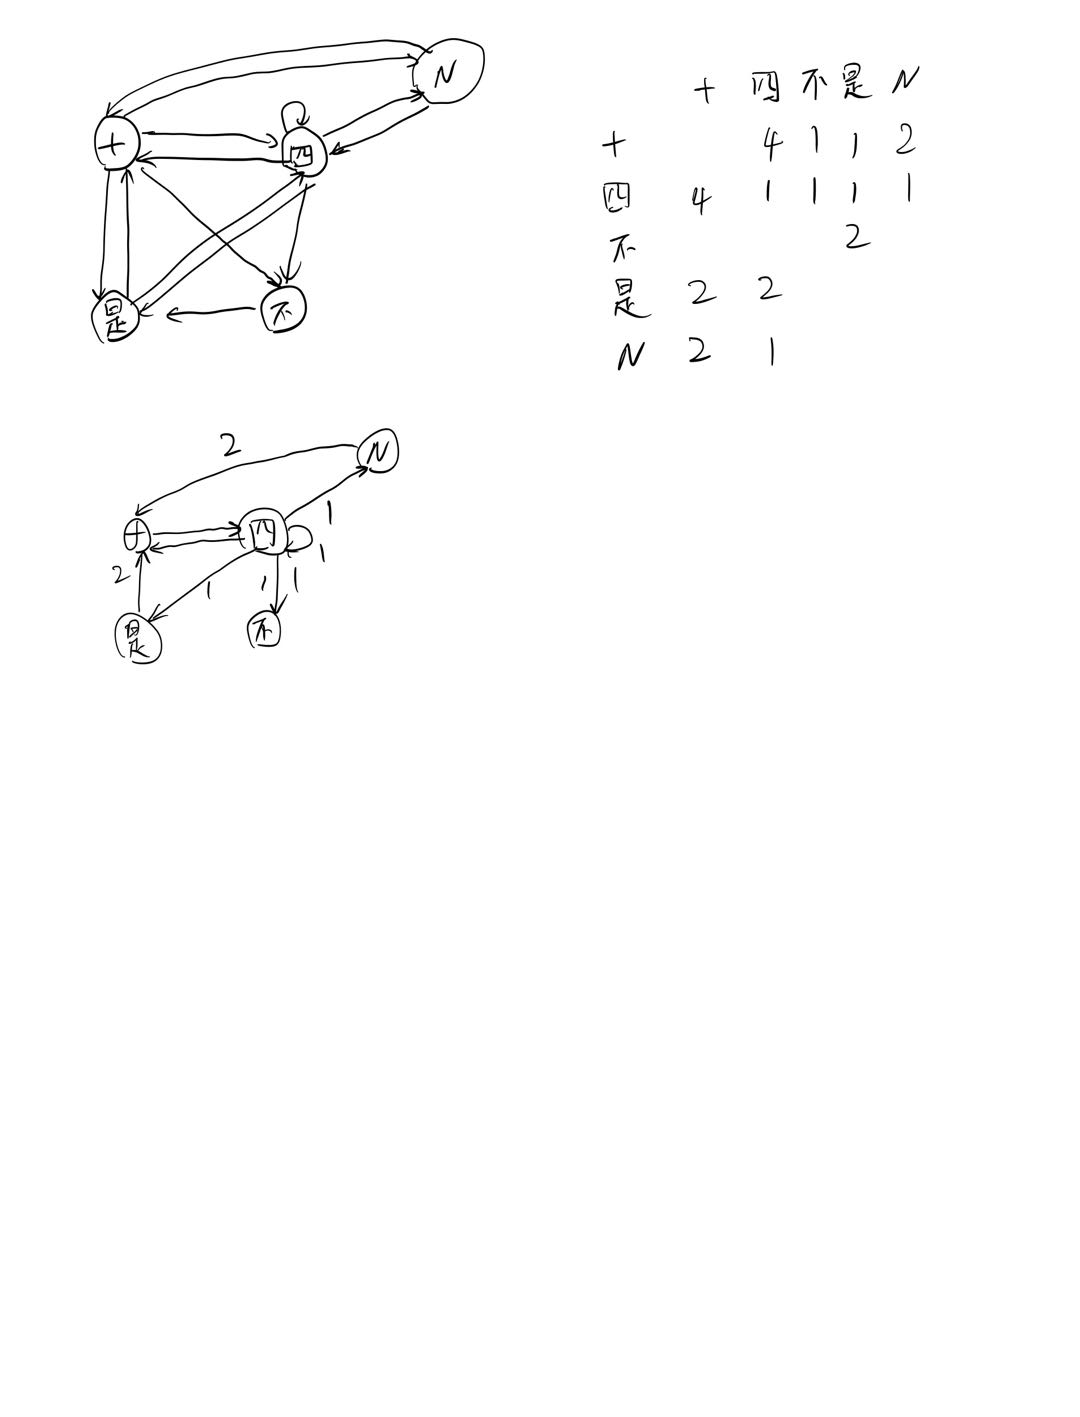 N
十 四
是 不
十 四 不 是 N
十 4 1 1 2
四 4 1 1 1 1
不 2
是 2 2
N 2 1
2 N
1
十 四
1
2 1 1 1
是 不